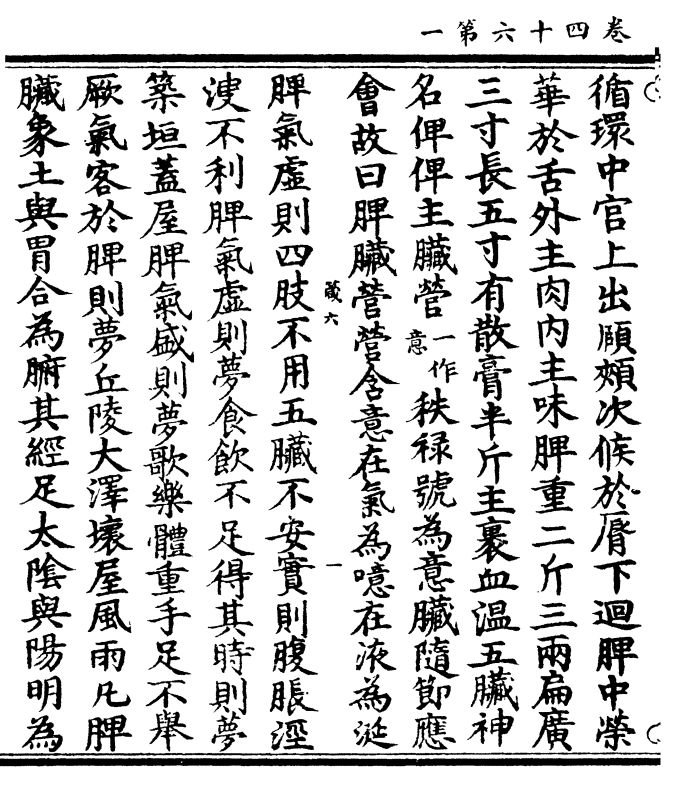 卷四十六第一
循環中宫上出頤頰次候於脣下迴脾中榮
華於舌外主肉内主味脾重二斤三兩扁廣
三寸長五寸有散膏半斤主裹血温五臟神
名俾俾主臟營一作意秩禄號為意臟隨節應
會故曰脾臟營營含意在氣為噫在液為涎
脾氣虛則四肢不用五臟不安實則腹脹涇
溲不利脾氣虛則夢食飲不足得其時則夢
築垣蓋屋脾氣盛則夢歌樂體重手足不舉
厥氣客於脾則夢丘陵大澤壞屋風雨凡脾
臟象土與胃合為腑其經足太陰與陽明為
藏六
一